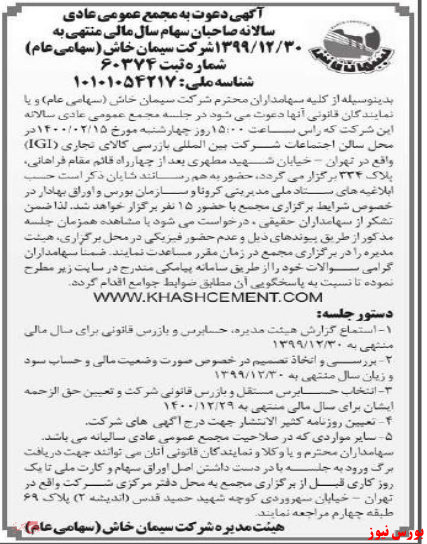 آگهی دعوت به مجمع عمومی عادی
سالانه صاحبان سهام سال مالی منتهی به
۱۳۹۹/۱۲/۳۰ شرکت سیمان خاش (سهامی عام)
شماره ثبت ۶۰۳۷۴
شناسه ملی: ۱۰۱۰۱۰۵۴۲۱۷
بدینوسیله از کلیه سهامداران محترم شرکت سیمان خاش (سهامی عام) و یا
نمایندگان قانونی آنها دعوت می شود در جلسه مجمع عمومی عادی سالانه
این شرکت که راس ساعت ۱۵:۰۰ روز چهارشنبه مورخ ۱۴۰۰/۰۲/۱۵ در
محل سالن اجتماعات شرکت بین المللی بازرسی کالای تجاری (IGI)
واقع در تهران – خیابان شهید مطهری بعد از چهارراه قائم مقام فراهانی،
پلاک ۳۳۴ برگزار می گردد، حضور به هم رسانند شایان ذکر است حسب
ابلاغیه های ستاد ملی مدیریتی کرونا و سازمان بورس و اوراق بهادار در
خصوص شرایط برگزاری مجمع با حضور ۱۵ نفر برگزار خواهد شد. لذا ضمن
تشکر از سهامداران حقیقی، درخواست می شود با مشاهده همزمان جلسه
مذکور از طریق پیوندهای ذیل و عدم حضور فیزیکی در محل برگزاری، هیئت
مدیره را در برگزاری مجمع در زمان مقرر مساعدت نمایند. ضمنا سهامداران
گرامی سوالات خود را از طریق سامانه پیامکی مندرج در سایت زیر مطرح
نموده تا نسبت به پاسخگویی آن مطابق ضوابط جوامع اقدام گردد.
WWW.KHASHCEMENT.COM
دستور جلسه:
۱- استماع گزارش هیئت مدیره، حسابرس و بازرس قانونی برای سال مالی
منتهی به ۱۳۹۹/۱۲/۳۰
۲- بررسی و اتخاذ تصمیم در خصوص صورت وضعیت مالی و حساب سود
و زیان سال منتهی به ۱۳۹۹/۱۲/۳۰
۳- انتخاب حسابرس مستقل و بازرس قانونی شرکت و تعیین حق الزحمه
ایشان برای سال مالی منتهی به ۱۴۰۰/۱۲/۲۹
۴- تعیین روزنامه کثیر الانتشار جهت درج آگهی های شرکت.
۵- سایر مواردی که در صلاحیت مجمع عمومی عادی سالیانه می باشد.
سهامداران محترم و یا وکلا و نمایندگان قانونی آنان می توانند جهت دریافت
برگ ورود به جلسه با در دست داشتن اصل اوراق سهام و کارت ملی تا یک
روز کاری قبل از برگزاری مجمع به محل دفتر مرکزی شرکت واقع در
تهران – خیابان سهروردی کوچه شهید حمید قدس (اندیشه ۲) پلاک ۶۹
طبقه چهارم مراجعه نمایند.
هیئت مدیره شرکت سیمان خاش (سهامی عام)
بورس نیوز